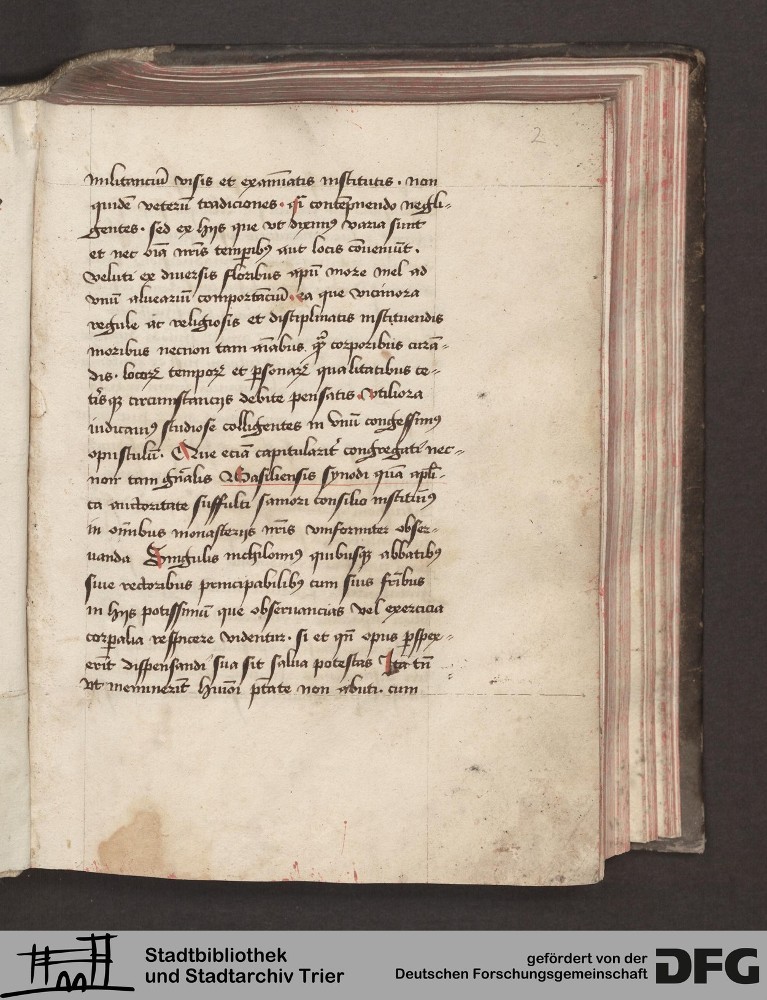 2
militanciū visis et examīatis institutis · non
quidē veterū tradiciones · qͣsi contēpnendo negli⸗
gentes · sed ex hijs que vt diximꝰ varia sunt
et nec oīa nrīs temꝑibꝰ aut locis conueniūt ·
veluti ex diuersis floribus apū more mel ad
vnū aluearium comportanciū · ea que vicinora
regule ac religiosis et disciplinatis instituendis
moribus necnon tam aīabus ꝙͣ corporibus curā⸗
dis · locoꝝ tempoꝝ et ꝑsonaꝝ qualitatibus ce⸗
tīsqꝫ circumstancijs debite pensatis · vtiliora
iudicamꝰ studiose colligentes in vnū congessimꝰ
opusculū · Que eciā capitularit̄ congregati nec⸗
non tam gn̄alis Basiliensis synodi quā apl̄i⸗
ca auctoritate suffulti saniori consilio instituīꝰ
in oīnibus monasterijs nrīs vniformiter obser⸗
uanda Singulis nichilominꝰ quibusqꝫ abbatibꝰ
siue rectoribus principabilibꝰ cum suis fr̄ibus
in hijs potissimū que obseruancias vel exercicia
corꝑalia respicere videntur · si et qn̄ opus ꝑspex⸗
erīt dispensandi sua sit salua potestas Ita tn̄
vt meminerīt huiōi ptāte non abuti · cum
Stadtbibliothek
und Stadtarchiv Trier
gefördert von der
Deutschen Forschungsgemeinschaft
DFG